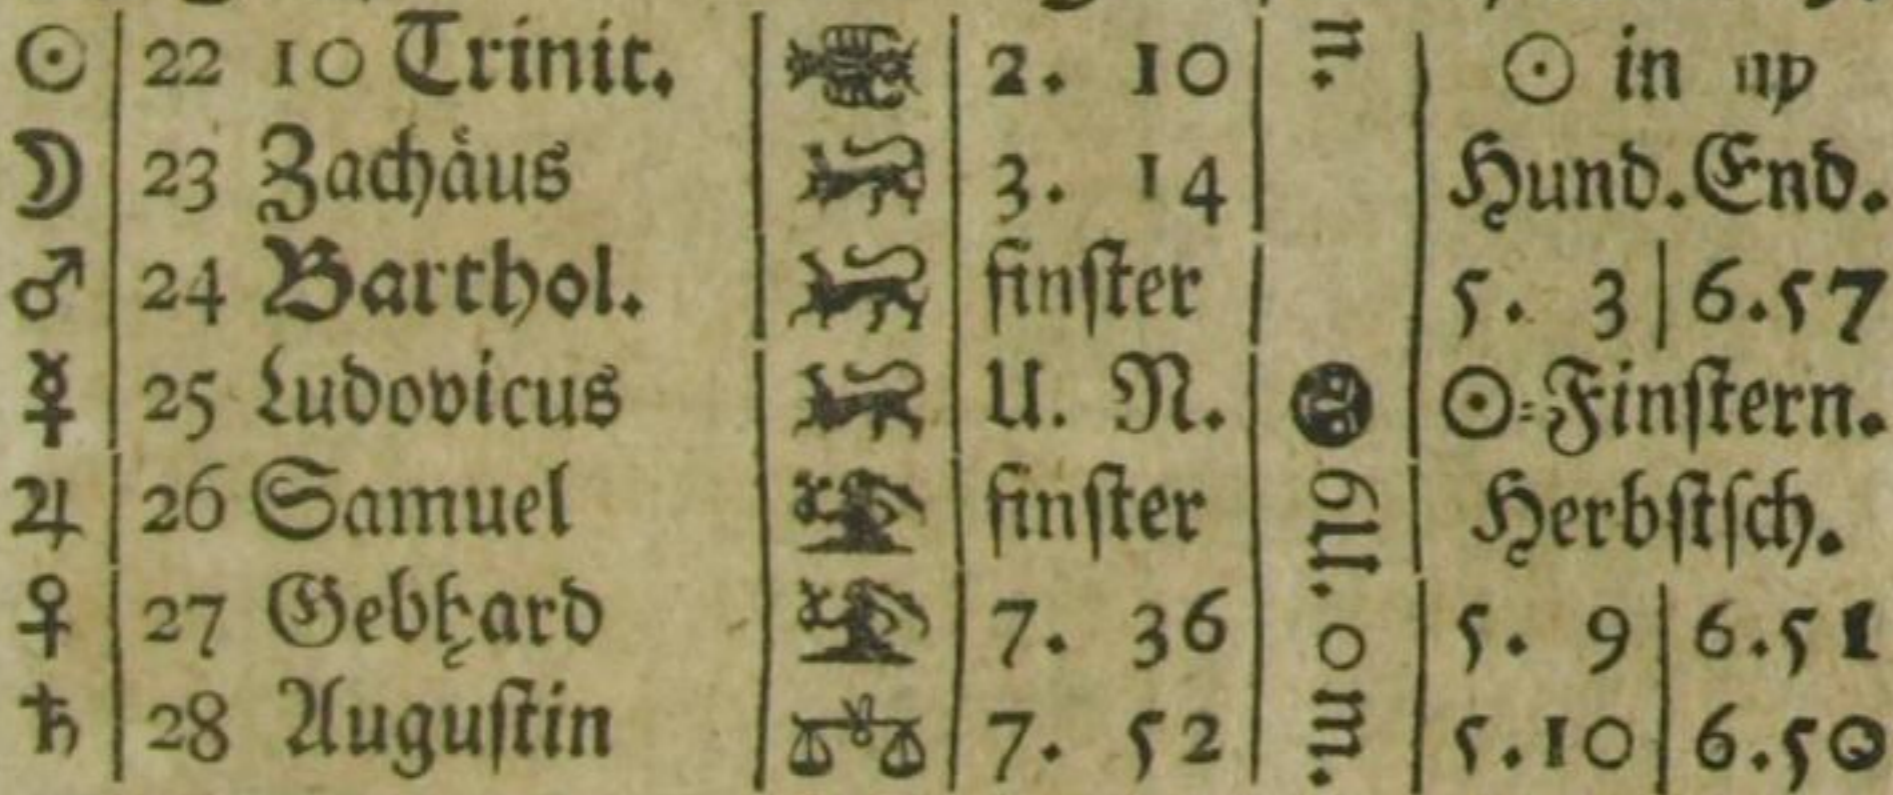 ☉ 22 10 Trinit. 2. 10 n. ☉ in ♍
☽ 23 Zachåus 3. 14 Hund.End.
♂ 24 Barthol. finſter 5. 3 6.57
☿ 25 Ludovicus U. N. ☉⸗Finſtern.
♃ 26 Samuel finſter 6U. 0 m. Herbſtſch.
♀ 27 Gebhard 7. 36 5. 9 6.51
♄ 28 Auguſtin 7. 52 5.10 6.50